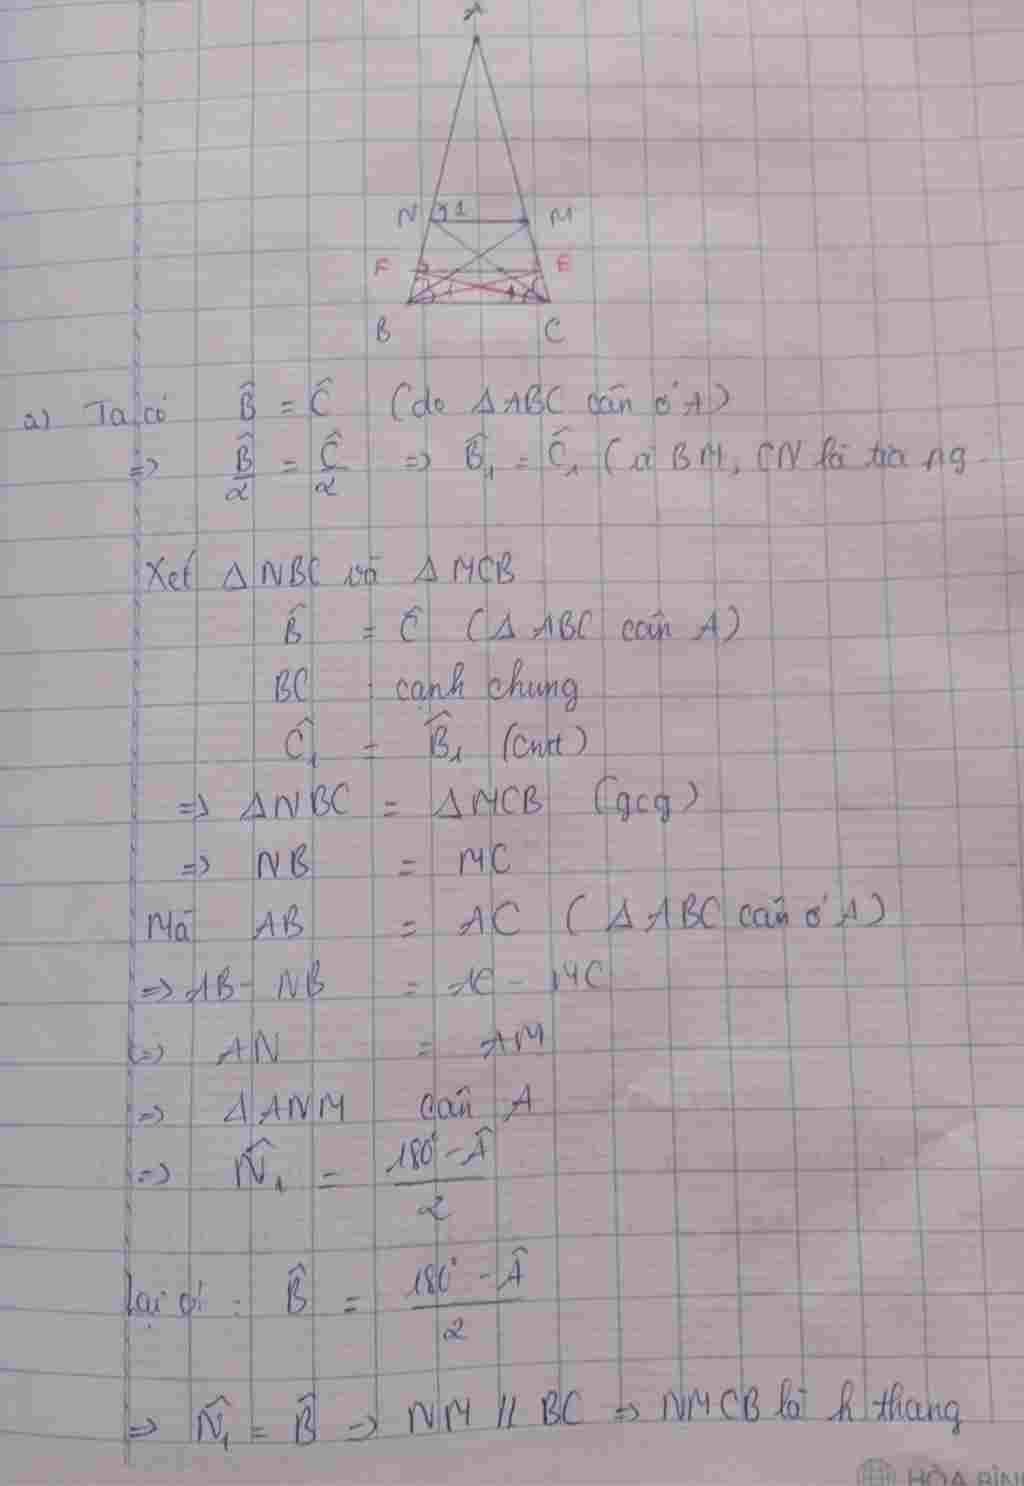 A
N 1 M
F E
B C
a) Ta có B̂ = Ĉ (do Δ ABC cân ở A)
=> B̂/2 = Ĉ/2 => B̂₁ = Ĉ₁ ( BM, CN là
Xét Δ NBC và Δ MCB
B̂ = Ĉ (Δ ABC cân A)
BC cạnh chung
Ĉ₁ = B̂₁ (cmt)
=> Δ NBC = Δ MCB (gcg)
=> NB = MC
Mà AB = AC (Δ ABC cân ở A)
=> AB - NB = AC - MC
=> AN = AM
=> Δ ANM cân A
=> N̂₁ = (180° - Â)/2
Lại có : B̂ = (180° - Â)/2
=> N̂₁ = B̂ => NM // BC => NMCB là h thang
HÒA BÌN